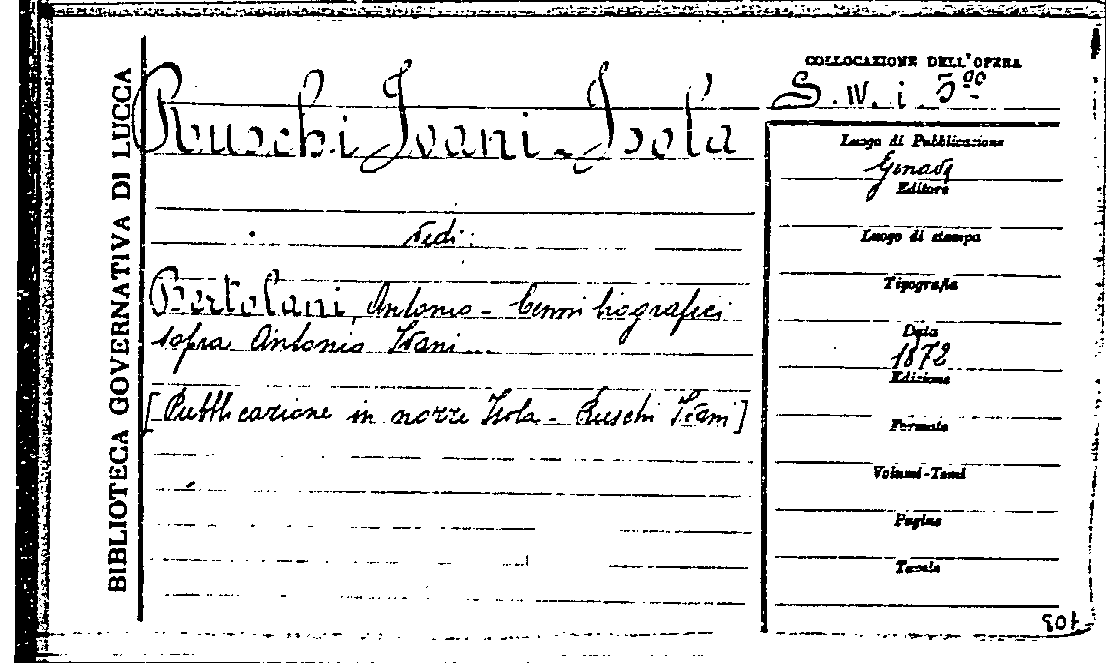 BIBLIOTECA GOVERNATIVA DI LUCCA
Ruschi Ivani - Isola
vedi:
Bertolani, Antonio - Cenni biografici
sopra Antonio Ivani...
[Pubblicazione in nozze Isola - Ruschi Ivani]
COLLOCAZIONE DELL'OPERA
S. W. i. 5
Luogo di Pubblicazione
Editore
Luogo di stampa
Tipografia
Data
1872
Edizione
Formato
Volumi-Tomi
Pagine
Tavole